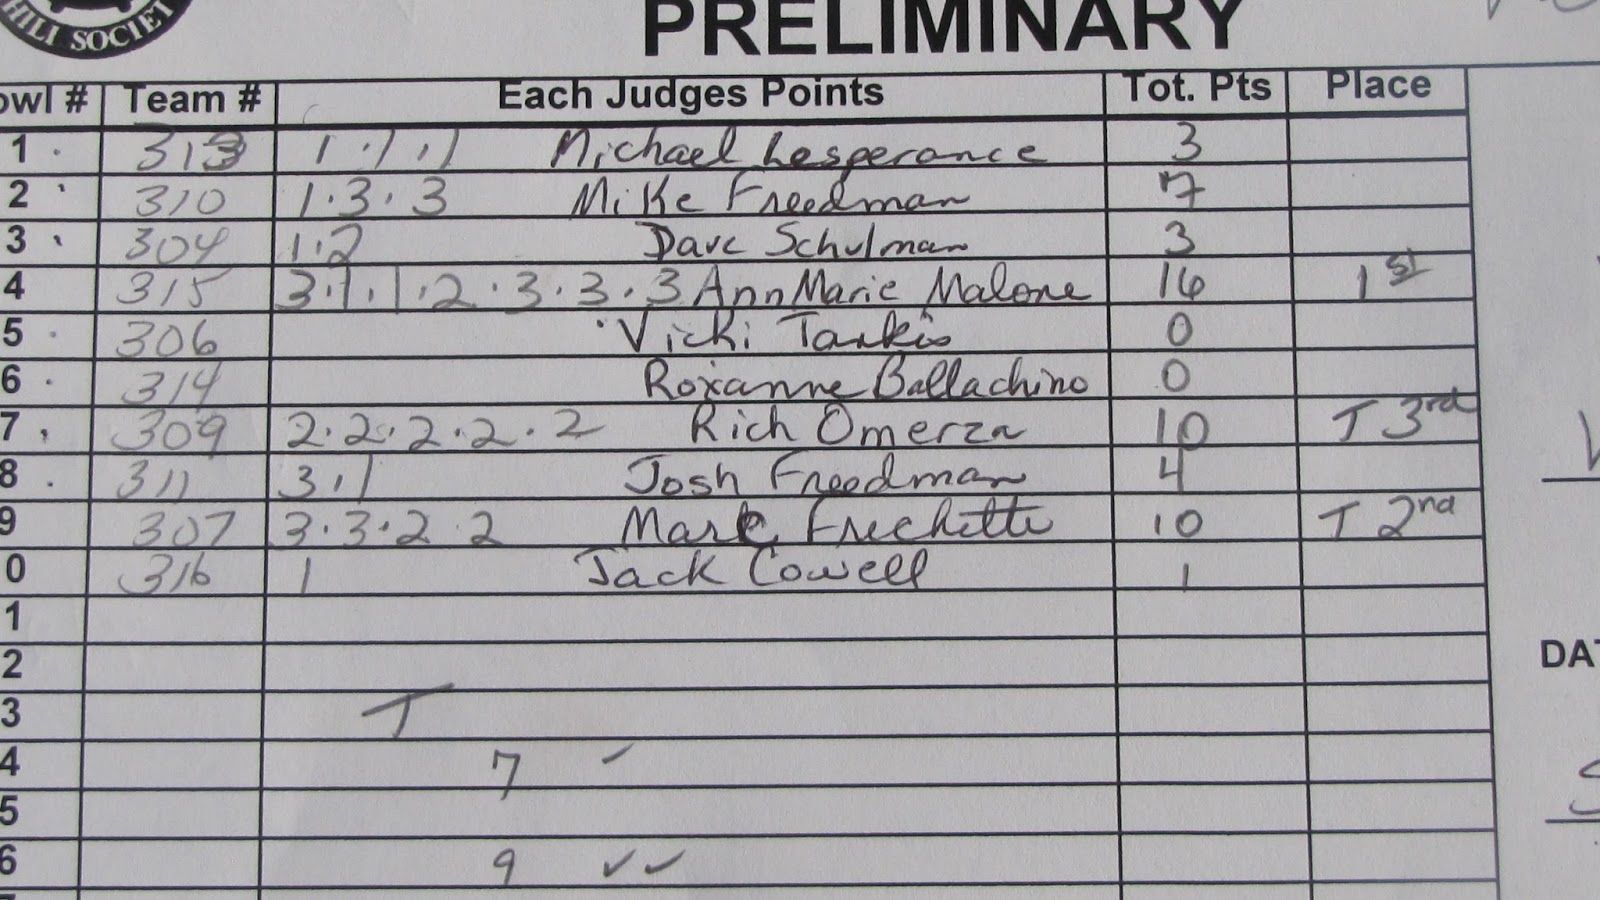 HILI SOCIET
PRELIMINARY
owl # Team # Each Judges Points Tot. Pts Place
1 313 1 . 1 . 1 Michael Lesperance 3
2 310 1 . 3 . 3 Mike Freedman 7
3 304 1 . 2 Dave Schulman 3
4 315 3 . 1 . 1 . 2 . 3 . 3 . 3 AnnMarie Malone 16 1st
5 306 Vicki Tarkis 0
6 314 Roxanne Ballachino 0
7 309 2 . 2 . 2 . 2 . 2 Rich Omerza 10 T 3rd
8 311 3 . 1 Josh Freedman 4
9 307 3 . 3 . 2 . 2 Mark Frechette 10 T 2nd
0 316 1 Jack Cowell 1
1
2
3 T
4 7 ✓
5
6 9 ✓✓
DAT